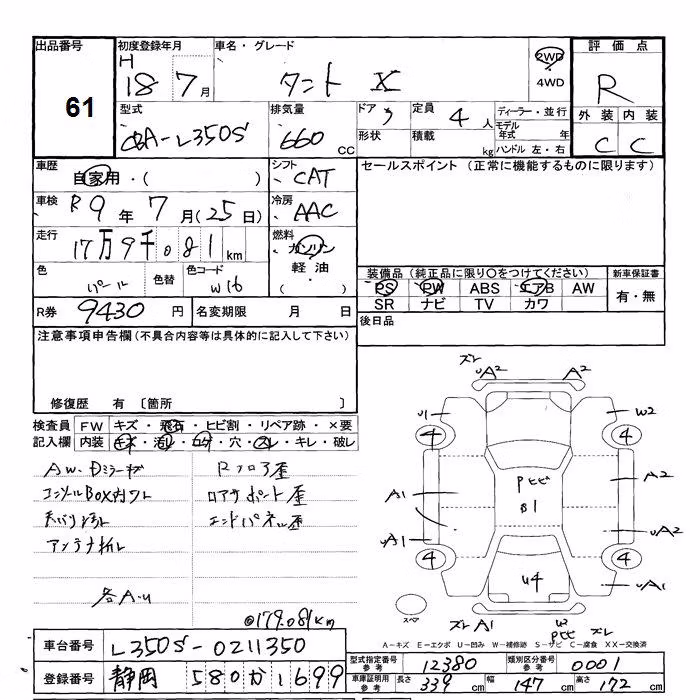 出品番号 61
初度登録年月 H 18 7月
車名・グレード タント X
2WD
4WD
評価点 R
外装 内装
C C
型式 CBA-L350S
排気量 660 CC
ドア
定員 4人
形状
積載 kg
ディーラー・並行
モデル年式 年
ハンドル 左・右
車歴 自家用・( )
シフト CAT
セールスポイント (正常に機能するものに限ります)
車検 R9年 7月(25日)
冷房 AAC
走行 17万9千081km
燃料 ガソリン
軽油
( )
色 パール
色替
色コード W16
装備品 (純正品に限り〇をつけてください)
新車保証書
PS PW ABS エアB AW
有・無
SR ナビ TV カワ
R券 9430円
名変期限 月 日
後日品
注意事項申告欄(不具合内容等は具体的に記入して下さい)
修復歴 有 〔箇所
検査員記入欄
FW キズ・飛石・ヒビ割・リペア跡・×要
内装 キズ・汚レ・コゲ・穴・スレ・キレ・破レ
AW・Dミラーキズ
Rフロア歪
コンソールBOX内ワレ
ロアサポート歪
天バリ汚レ
エンドパネル歪
アンテナ折レ
各A・U
◎179.081km
ズレ
UA2 A2
U1 W2
4 4
A2
Pヒビ
A1
B1
UA2
UA1
4 4
U4
UA1
スペア
ズレ A1
W
Pヒビ ズレ
A-キズ E-エクボ U-凹み W-補修跡 S-サビ C-腐食 XX-交換済
車台番号 L350S-0211350
登録番号 静岡 580 か 1699
型式指定番号 参考 12380
類別区分番号 参考 0001
車庫証明用 参考 長さ 339cm 幅 147cm 高さ 172cm